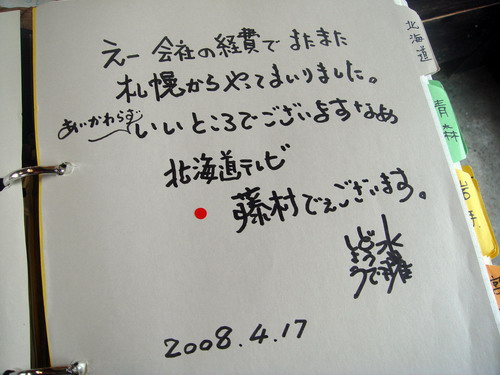 えー会社の経費でまたまた
札幌からやってまいりました。
あいかわらず
いいところでございますなぁ
北海道テレビ
藤村でございます。
水曜
どう
でしょう
2008.4.17
北海道
青森
岩手